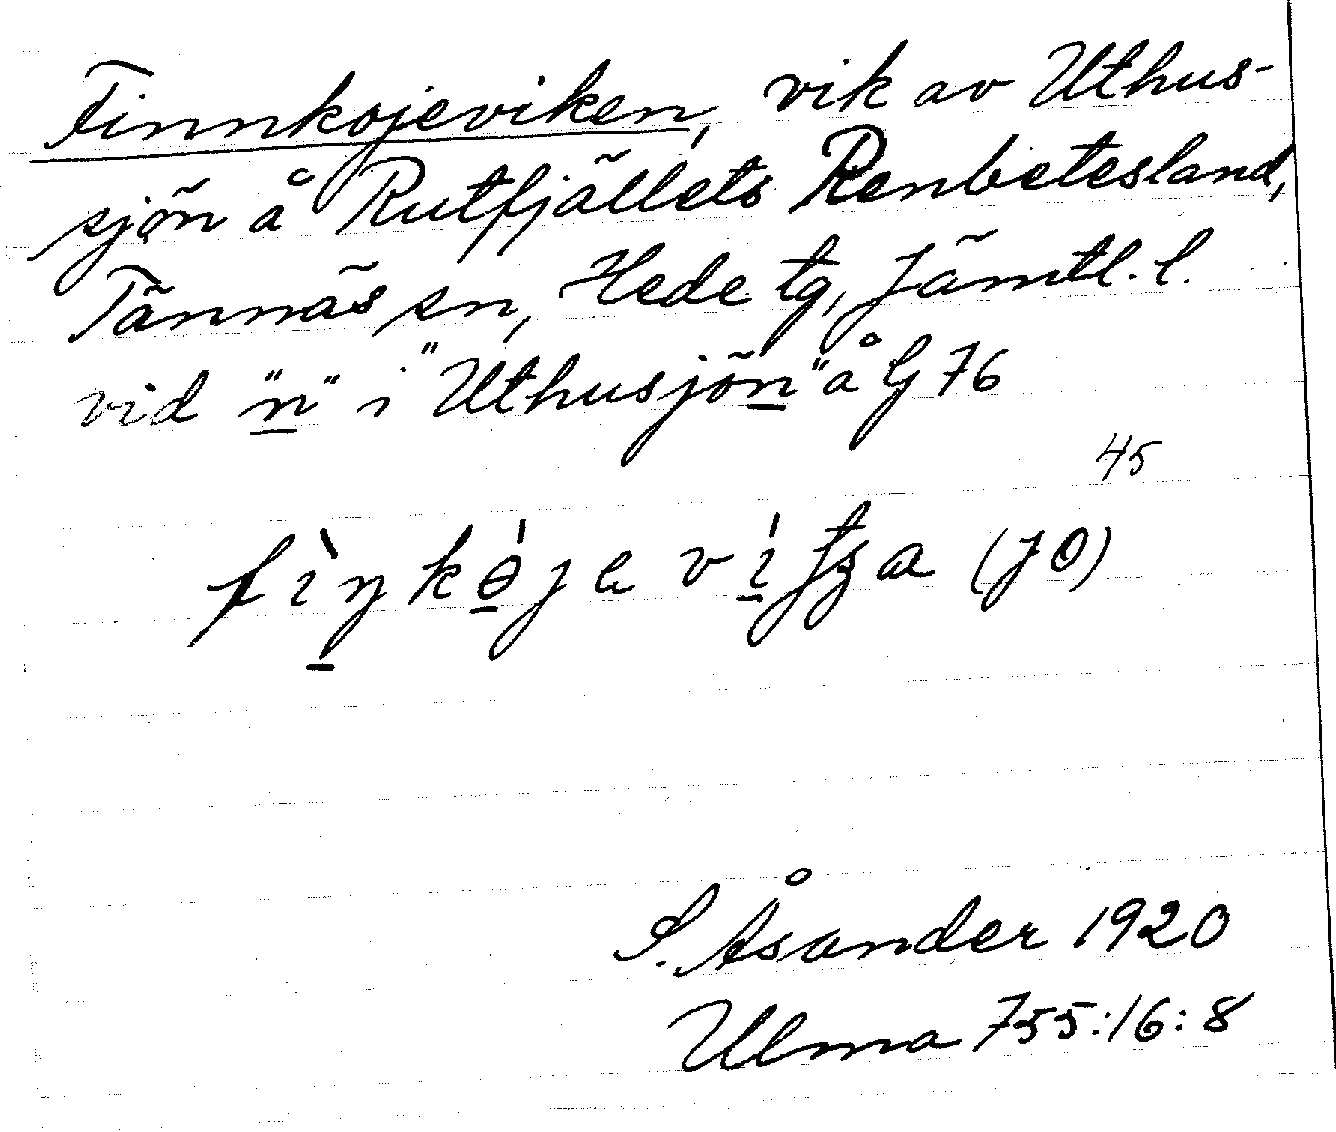 Finnkojeviken, vik av Uthus-
sjön å Rutfjällets Renbetesland,
Tännäs sn, Hede tg, Jämtl. l.
vid "n" i "Uthusjön" å G 76
45
(JO)
S. Åsander 1920
Ulma 755:16:8